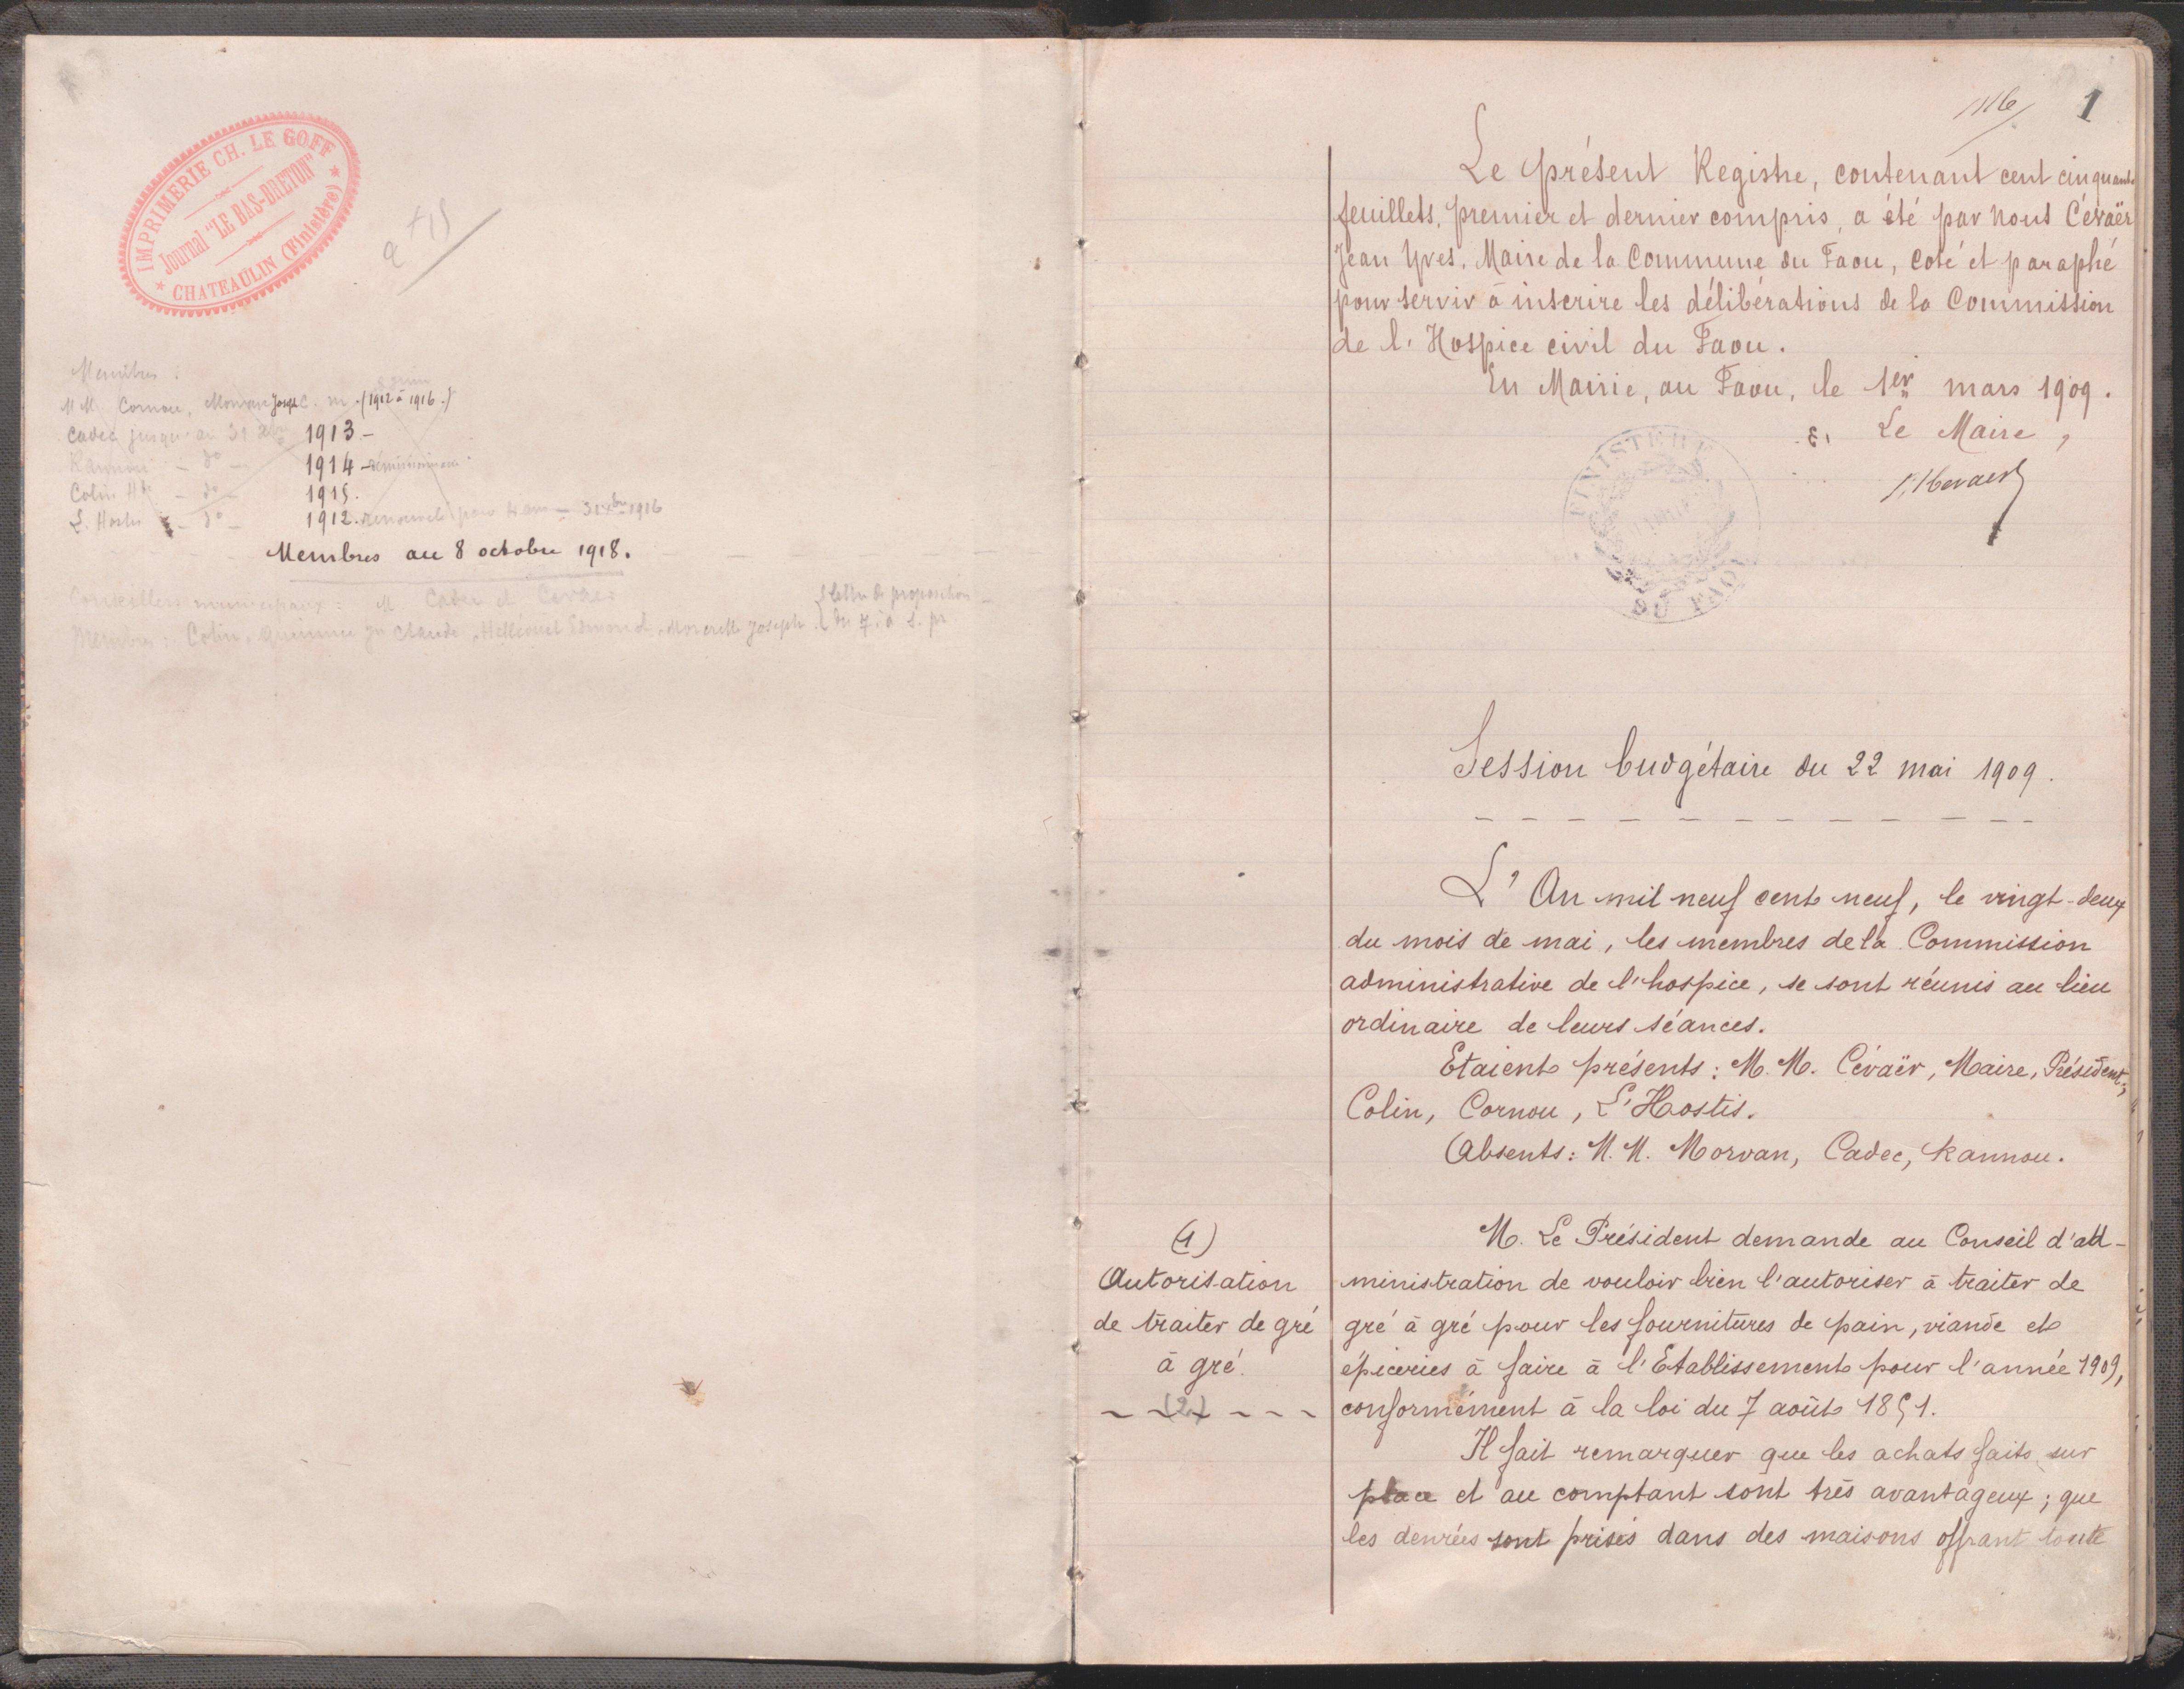 IMPRIMERIE CH. LE GOFF
Journal "LE BAS-BRETON"
* CHATEAULIN (Finistère) *
Membres :
MM. Cornou, Morvan Joseph C. m. (1912 à 1916.)
Cadec jusqu'au 31 Xbre 1913 -
Kannou - do - 1914 - démissionnaire
Colin - do - 1915.
L'Hostis - do - 1912. renouvelé pour 4 ans - 31 Xbre 1916
Membres au 8 octobre 1918.
Conseillers municipaux : M Cadec et Cevaër
Membres : Colin, Jn Claude, Edmond, Joseph
lettre de proposition
du 7
1
Le présent Registre, contenant cent cinquante
feuillets, premier et dernier compris, a été par nous Cévaër
Jean Yves, Maire de la Commune du Faou, coté et paraphé
pour servir à inscrire les délibérations de la Commission
de l'Hospice civil du Faou.
En Mairie, au Faou, le 1er mars 1909.
Le Maire,
FINISTERE
DU FAOU
Session budgétaire du 22 mai 1909.
L'An mil neuf cent neuf, le vingt-deux
du mois de mai, les membres de la Commission
administrative de l'hospice, se sont réunis au lieu
ordinaire de leurs séances.
Etaient présents : M.M. Cévaër, Maire, Président,
Colin, Cornou, L'Hostis.
Absents : M.M. Morvan, Cadec, Kannou.
(1)
Autorisation
de traiter de gré
à gré.
(2)
M. Le Président demande au Conseil d'ad-
ministration de vouloir bien l'autoriser à traiter de
gré à gré pour les fournitures de pain, viande et
épiceries à faire à l'Etablissement pour l'année 1909,
conformément à la loi du 7 août 1851.
Il fait remarquer que les achats faits sur
place et au comptant sont très avantageux ; que
les denrées sont prises dans des maisons offrant toute